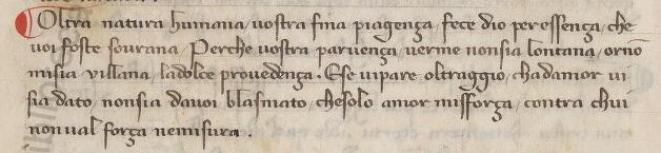 Oltra natura humana uostra fina piagença, fece dio per essença, che
uoi foste sourana, Perche uostra paruença, uerme nonsia lontana, orno
misia uillana, ladolce prouedença. Ese uipare oltraggio, chadamor ui
sia dato, nonsia dauoi blasmato, chesolo amor missforça, contra chui
nonual força nemisura.